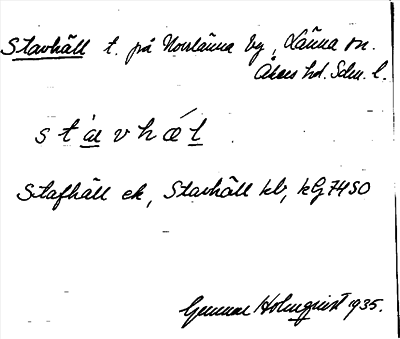 Stavhäll t. på Norrlänna by, Länna sn.
Åkers hd. Sdm. l.
stàvhǽl
Stafhäll ek, Stavhäll kb, kG7450
Gunnar Holmquist 1935.